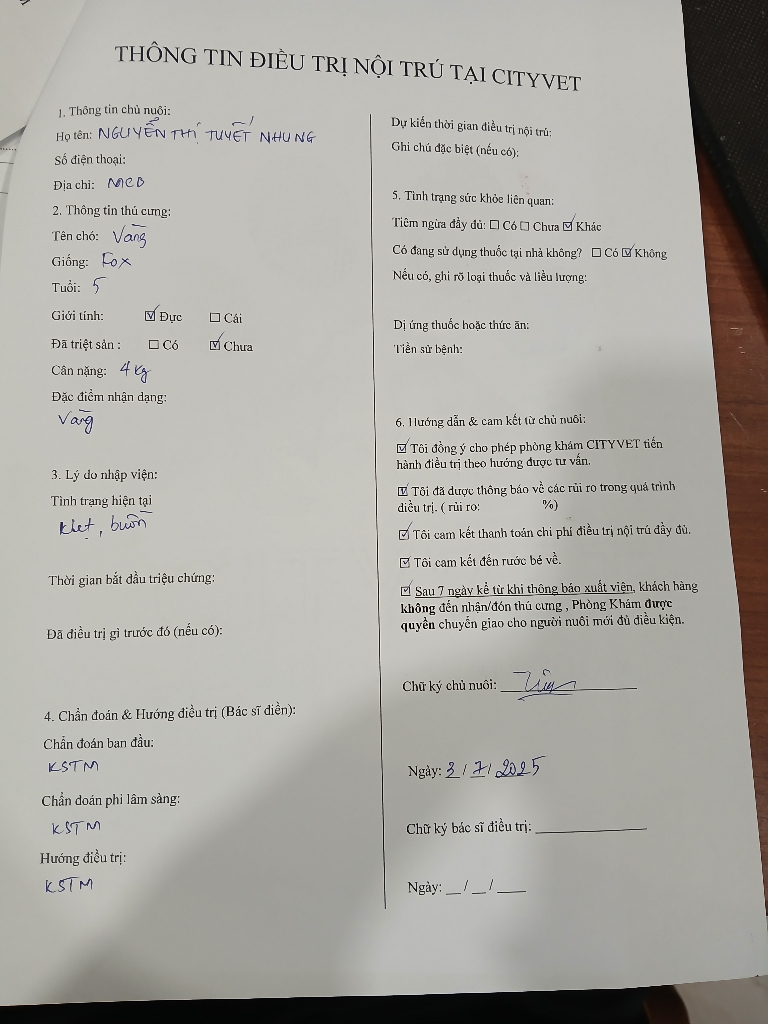 THÔNG TIN ĐIỀU TRỊ NỘI TRÚ TẠI CITYVET
1. Thông tin chủ nuôi:
Họ tên: NGUYỄN THỊ TUYẾT NHUNG
Số điện thoại:
Địa chỉ: MCD
2. Thông tin thú cưng:
Tên chó: Vàng
Giống: Fox
Tuổi: 5
Giới tính: ☑ Đực ☐ Cái
Đã triệt sản : ☐ Có ☑ Chưa
Cân nặng: 4 kg
Đặc điểm nhận dạng:
Vàng
3. Lý do nhập viện:
Tình trạng hiện tại
khẹt, buồn
Thời gian bắt đầu triệu chứng:
Đã điều trị gì trước đó (nếu có):
4. Chẩn đoán & Hướng điều trị (Bác sĩ điền):
Chẩn đoán ban đầu:
KSTM
Chẩn đoán phi lâm sàng:
KSTM
Hướng điều trị:
KSTM
Dự kiến thời gian điều trị nội trú:
Ghi chú đặc biệt (nếu có):
5. Tình trạng sức khỏe liên quan:
Tiêm ngừa đầy đủ: ☐ Có ☐ Chưa ☑ Khác
Có đang sử dụng thuốc tại nhà không? ☐ Có ☑ Không
Nếu có, ghi rõ loại thuốc và liều lượng:
Dị ứng thuốc hoặc thức ăn:
Tiền sử bệnh:
6. Hướng dẫn & cam kết từ chủ nuôi:
☑ Tôi đồng ý cho phép phòng khám CITYVET tiến
hành điều trị theo hướng được tư vấn.
☑ Tôi đã được thông báo về các rủi ro trong quá trình
điều trị. ( rủi ro: %)
☑ Tôi cam kết thanh toán chi phí điều trị nội trú đầy đủ.
☑ Tôi cam kết đến rước bé về.
☑ Sau 7 ngày kể từ khi thông báo xuất viện, khách hàng
không đến nhận/đón thú cưng , Phòng Khám được
quyền chuyển giao cho người nuôi mới đủ điều kiện.
Chữ ký chủ nuôi:
Ngày: 3 / 7 / 2025
Chữ ký bác sĩ điều trị: ____
Ngày: __ / __ / ____